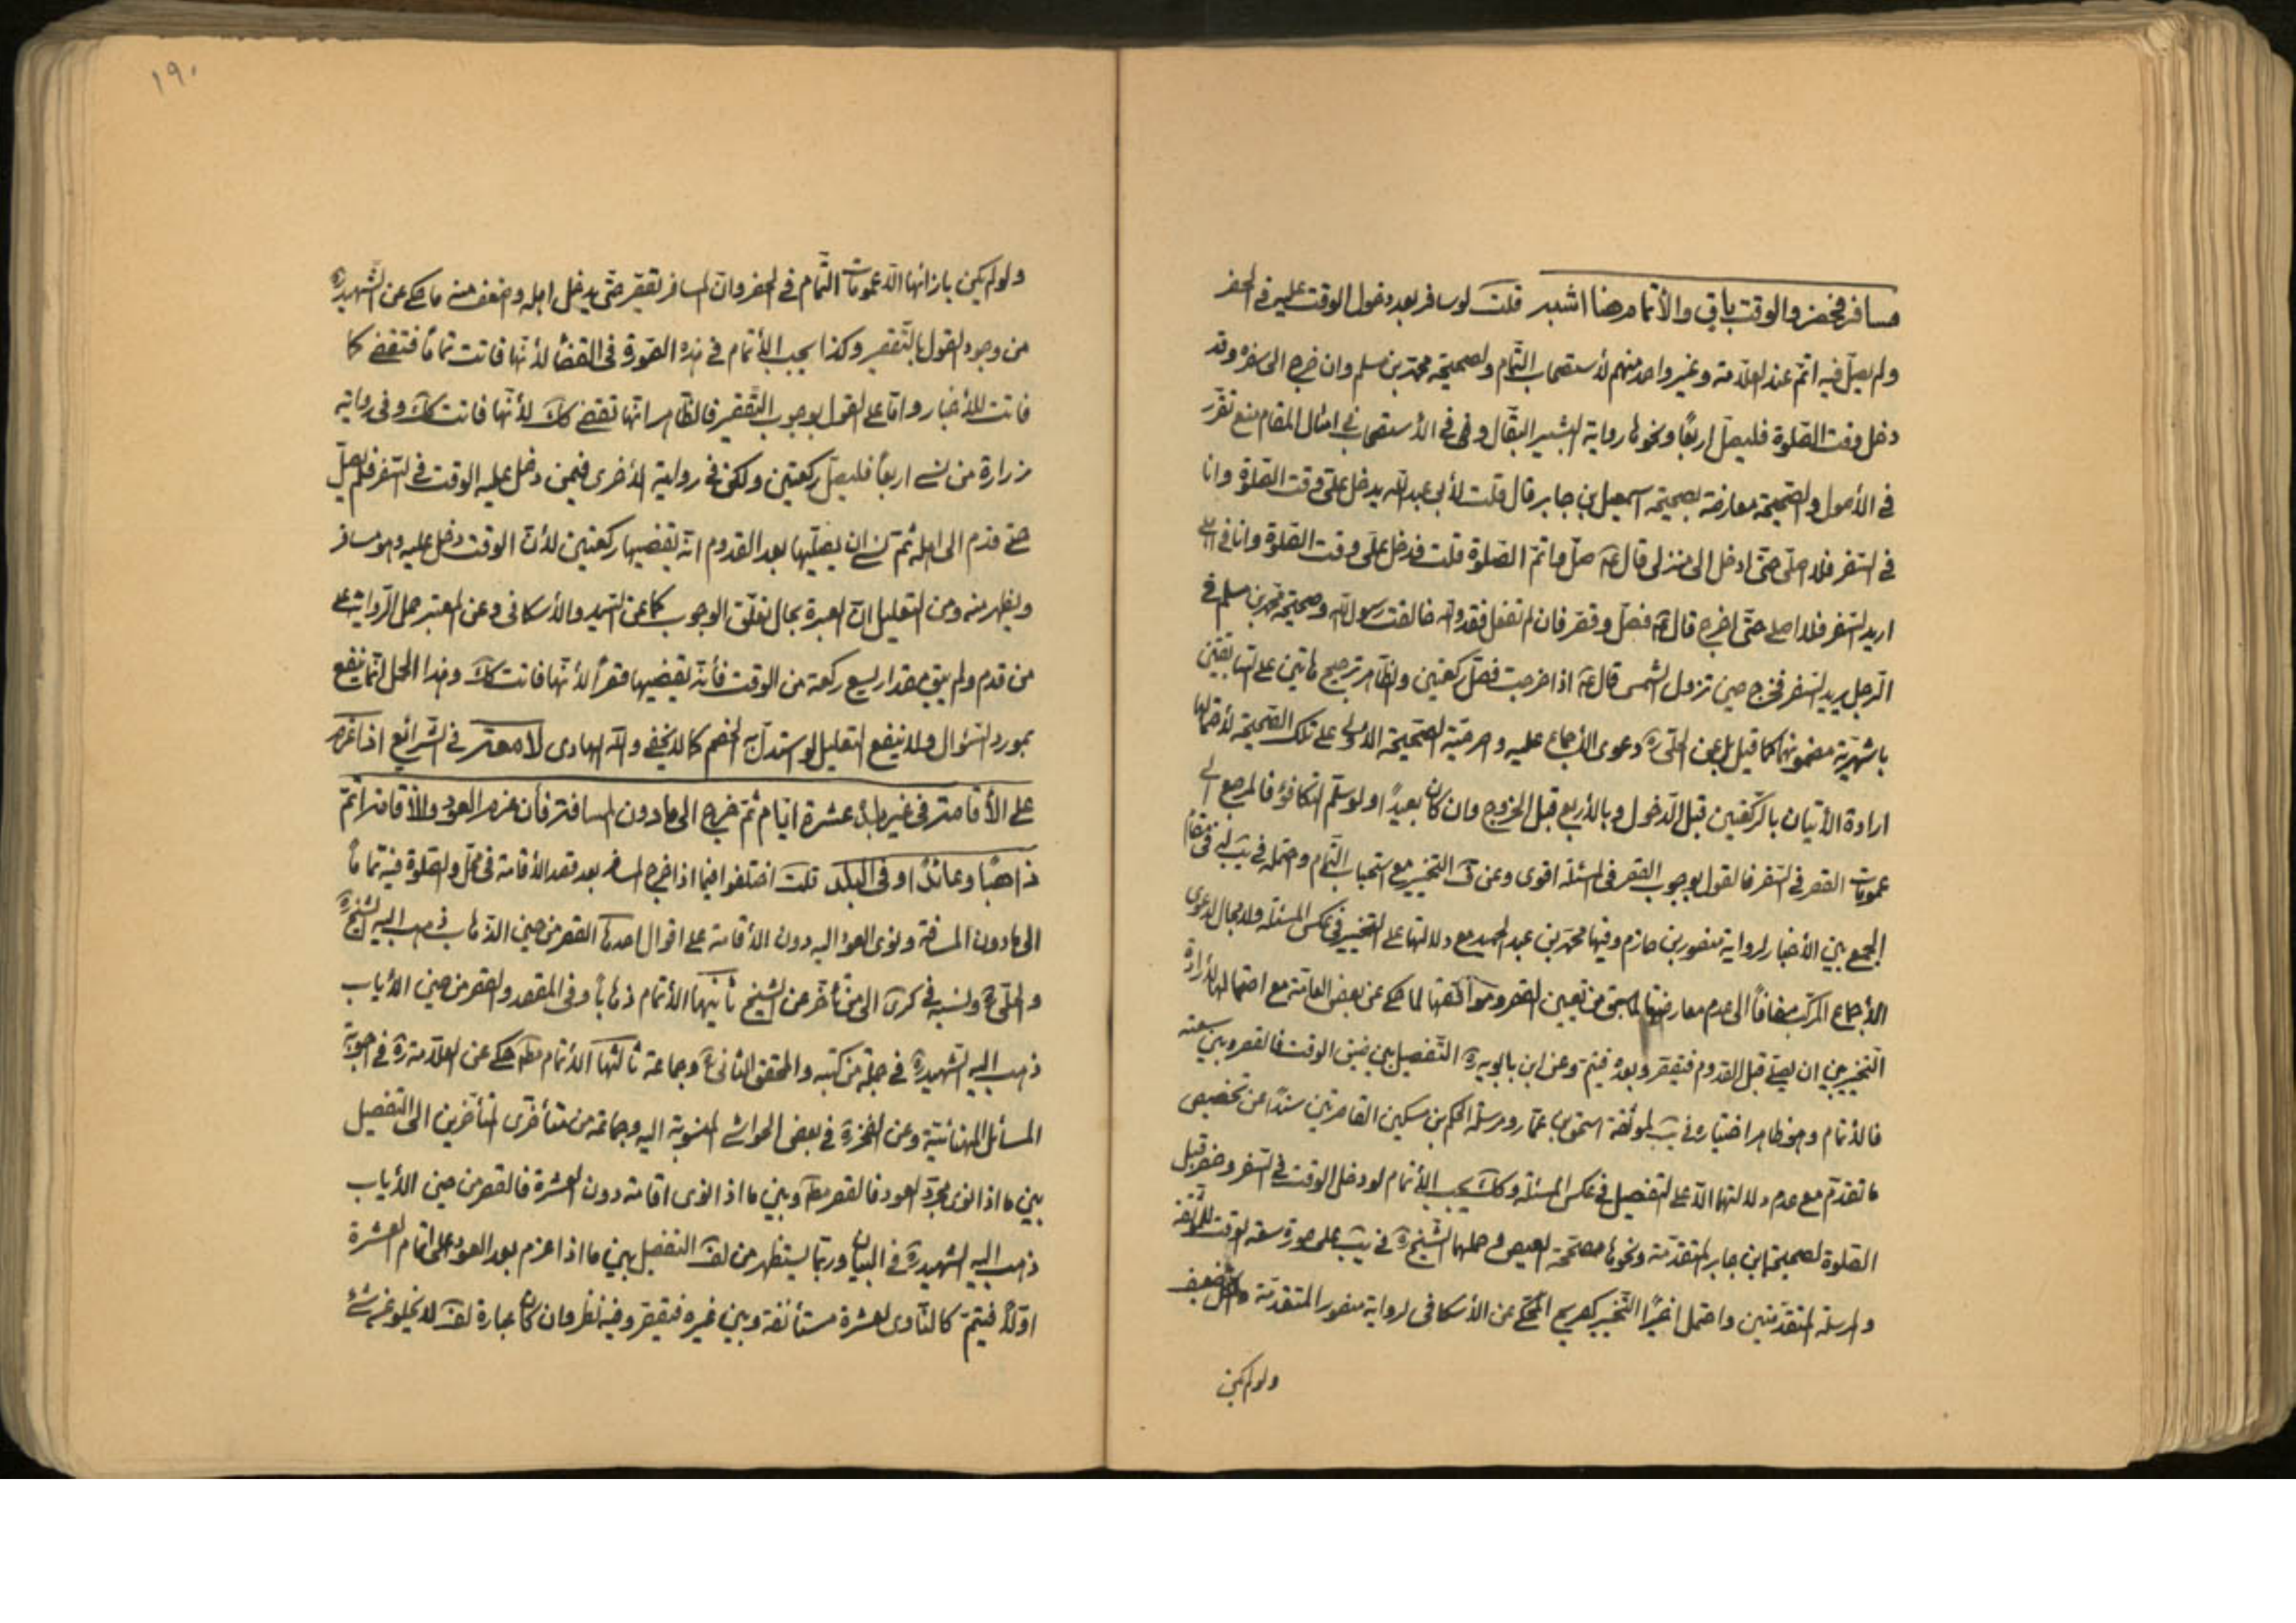 مسافر فحضر والوقت باق والأتمام هنا اشبه قلت لو سافر بعد دخول الوقت عليه فى الحضر
ولم يصلّ فيه اتمّ عند العلّامة وغير واحد منهم لأستصحاب التّمام ولصحيحة محمّد بن مسلم وان خرج الى سفره وقد
دخل وقت الصّلوة فليصلّ اربعًا ونحوها رواية البشير النبّال وفى الأستصحاب فى امثال المقام منع تقرّر
فى الأصول والصّحيحة معارضة بصحيحة اسمعيل بن جابر قال قلت لأبى عبد اللّه يدخل علىّ وقت الصّلوة وانا
فى السّفر فلا اصلّى حتّى ادخل الى منزلى قال عَ صلّ واتمّ الصّلوة قلت فدخل علىّ وقت الصّلوة وانا فى اهلى
اريد السّفر فلا اصلى حتّى اخرج قال عَ فصلّ وقصّر فان لم تفعل فقد واللّه خالفت رسول اللّه وصحيحة محمّد بن مسلم فى
الرّجل يريد السّفر فخرج حين تزول الشّمس قال عَ اذا خرجت فصلّ ركعتين والظّاهر ترجيح هاتين على السّابقتين
باشهريّة مضمونهما كما قيل بل عن الحلّى ره دعوى الأجماع عليه واصرحيّة الصّحيحة الأولى على تلك الصّحيحة لأحتمالها
ارادة الأتيان بالرّكعتين قبل الدّخول وبالأربع قبل الخروج وان كان بعيدًا ولو سلّم التكافؤ فالمرجع الى
عمومات القصر فى السّفر فالقول بوجوب القصر فى المسئلة اقوى وعن ف التخيير مع استحباب التّمام واحتمله فى يب لزفى مقام
الجمع بين الأخبار لرواية منصور بن حازم وفيها محمّد بن عبد الحميد مع دلالتها على التخيير فى عكس المسئلة ولا مجال لدعوى
الأجماع المركّب مضافًا الى عدم معارضتها لما سبق من تعيين القصر وموافقتها لما حكى عن بعض العامّة مع احتمالها لأرادة
التّخيير بين ان يصلّى قبل القدوم فيقصّر وبعده فيتمّ وعن ابن بابويه ره التّفصيل بين ضيق الوقت فالقصر وبين سعته
فالأتمام وهو ظاهر اختياره فى يب لموثّقة اسحق بن عمّار ومرسلة الحكم بن مسكين القاصرتين سندًا عن تخصيص
ما تقدّم مع عدم دلالتهما الّا على التفصيل فى عكس المسئلة وكَكَ يجب الأتمام لو دخل الوقت فى السّفر وحضر قبل
الصّلوة لصحيحة ابن جابر المتقدّمة ونحوها مصحّحة العيص وحملهما الشّيخ ره فى يب على صورة سعة الوقت للموثّقة
والمرسلة المتقدّمتين واحتمل اخيرًا التّخيير كصريح المحكى عن الأسكافى لرواية منصور المتقدّمة والكلّ ضعيف
ولو لم يكن
١٩٠
ولو لم يكن بازائها الّا عمومات التّمام فى الحضر وانّ المسافر يقصّر حتّى يدخل اهله وضعف منه ما حكى عن الشّهيد ره
من وجود القول بالتّقصير وكذا يجب الأتمام فى هذه الصّورة فى القضاء لأنّها فاتت تمامًا فتقضى كما
فاتت للأخبار وامّا على القول بوجوب التّقصير فالظّاهر انّها تقضى كَكَ لأنّها فاتت كَكَ وفى رواية
زرارة من نسى اربعًا فليصلّ ركعتين ولكن فى روايته الأخرى فيمن دخل عليه الوقت فى السّفر فلم يصلّ
حتى قدم الى اهله ثمّ نسى ان يصلّيها بعد القدوم انّه يقضيها ركعتين لأنّ الوقت دخل عليه وهو مسافر
ويظهر منه ومن التعليل انّ العبرة بحال تعلّق الوجوب كما عن السّيد والأسكافى وعن المعتبر حمل الرّواية على
من قدم ولم يبق مقدار يسع ركعة من الوقت فأنّه يقضيها قصرًا لأنّها فاتت كَكَ وهذا الحمل انّما ينفع
بمورد السّؤال ولا ينفع التعليل لو استدلّ به الخصم كما لا يخفى واللّه الهادى لامعة فى الشّرائع اذا عزم
على الأقامة فى غير بلده عشرة ايّام ثمّ خرج الى ما دون المسافة فأن عزم العود والأقامة اتمّ
ذاهبًا وعائدًا وفى البلد قلت اختلفوا فيما اذا خرج المسافر بعد قصد الأقامة فى محلّ والصلوة فيه تمامًا
الى ما دون المسافة ونوى العود اليه دون الأقامة على اقوال احدها القصر من حين الذّهاب ذهب اليه الشّيخ ره
والحلّى ره ونسبه فى كرى الى من تأخّر عن الشّيخ ثانيها الأتمام ذهابًا وفى المقصد والقصر من حين الأياب
ذهب اليه الشّهيد ره فى جملة من كتبه والمحقّق الثّانى ره وجماعة ثالثها الأتمام مط حكى عن العلّامة ره فى اجوبة
المسائل المهنائيّة وعن الفخر ره فى بعض الحواشى المنسوبة اليه وجماعة من متأخّرى المتأخّرين الى التفصيل
بين ما اذا نوى مجرّد العود فالقصر مط وبين ما اذا نوى اقامة دون العشرة فالقصر من حين الأياب
ذهب اليه الشّهيد ره فى البيان وربّما يستظهر من لف التفصيل بين ما اذا عزم بعد العود على اتمام العشرة
اوّلًا فيتمّ كالنّاوى لعشرة مستأنفة وبين غيره فيقصّر وفيه نظر وان كان عبارة لف لا يخلو عن شىء